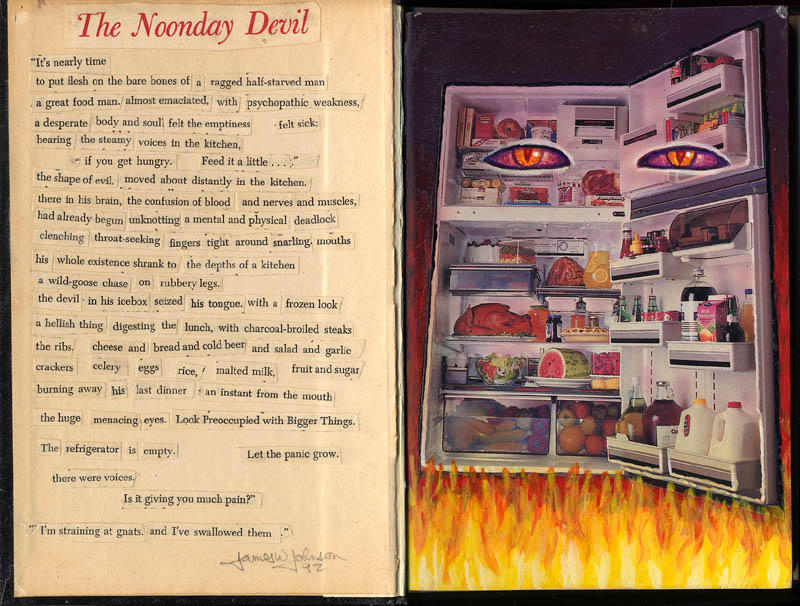 The Noonday Devil
"It's nearly time
to put flesh on the bare bones of a ragged half-starved man
a great food man. almost emaciated, with psychopathic weakness,
a desperate body and soul felt the emptiness felt sick.
hearing the steamy voices in the kitchen,
" if you get hungry. Feed it a little . . . ."
the shape of evil. moved about distantly in the kitchen.
there in his brain, the confusion of blood and nerves and muscles,
had already begun unknotting a mental and physical deadlock
clenching throat-seeking fingers tight around snarling, mouths
his whole existence shrank to the depths of a kitchen
a wild-goose chase on rubbery legs.
the devil in his icebox seized his tongue. with a frozen look
a hellish thing digesting the lunch, with charcoal-broiled steaks
the ribs. cheese and bread and cold beer and salad and garlic
crackers celery eggs rice, malted milk, fruit and sugar
burning away his last dinner an instant from the mouth
the huge menacing eyes. Look Preoccupied with Bigger Things.
The refrigerator is empty. Let the panic grow.
there were voices.
Is it giving you much pain?"
" I'm straining at gnats. and I've swallowed them ."
James W Johnson
92